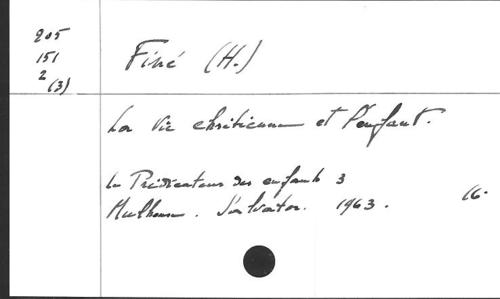 205
151
2
(3)
Finé (H.)
La Vie chrétienne et l'enfant.
Le Prédicateur des enfants 3
Mulhouse. Salvator. 1963. 16.